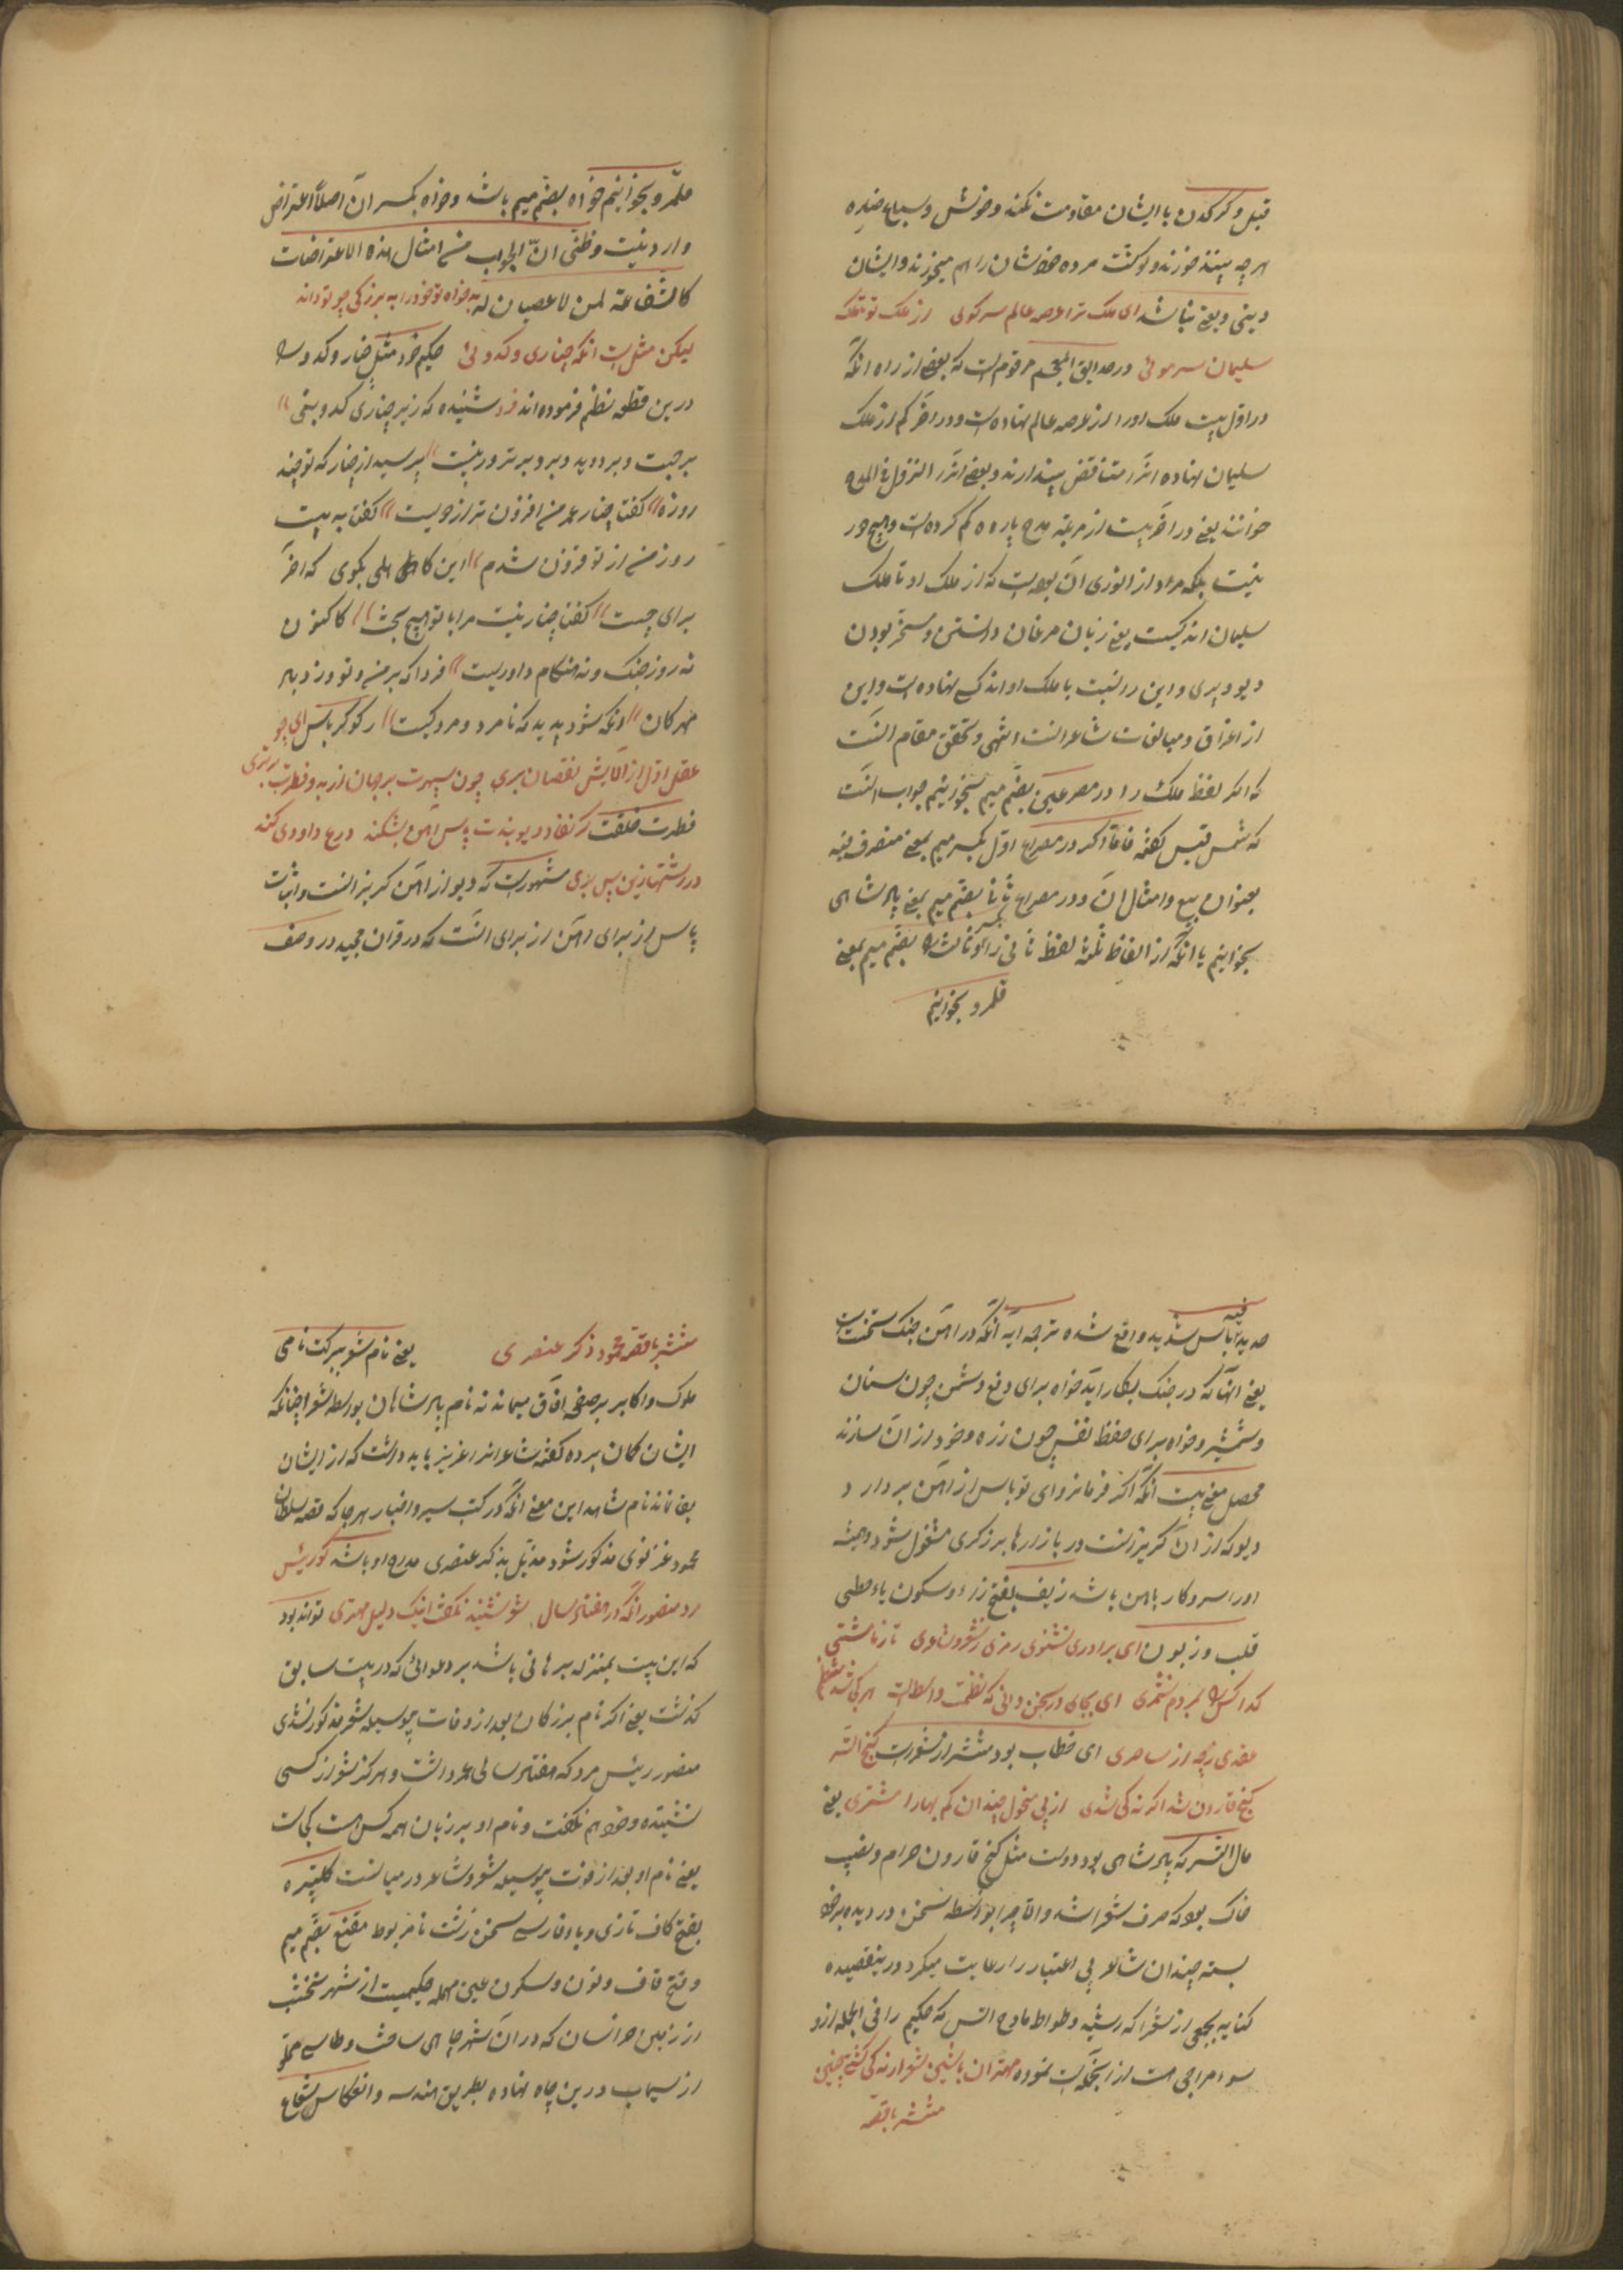 فیل و کرکدن با ایشان مقاومت نکند و خونش و سباع صید
هر چه بینند خورند و گوشت مرده خودشان را هم میخورند و ایشان
دینی و بعثی نباشد ای ملک ترا عرصه عالم سر کوئی از ملک تو تا ملک
سلیمان سر موئی و در حدایق العجم مرقوم است که بعضی از راه آنکه
در اول بیت ملک او را از عرصه عالم نهاده است و در آخر کم از ملک
سلیمان نهاده اند متناقض پندارند و بعضی اند را التزول فی المدح
خوانند یعنی در آخر بیت از مرتبه مدح پاره کم کرده است و هیچ در
نیست بلکه مراد از انوری آن بوده است که از ملک او تا ملک
سلیمان اندکیست یعنی زبان مرغان دانستن و مسخر بودن
دیو و پری و این را نسبت با ملک او اندک نهاده است و این
از اغراق و مبالغات شاعرانست انتهی و تحقیق مقام آنست
که اگر لفظ ملک را در مصرعین بضم میم بخوانیم جواب آنست
که شمس قیس گفته فاما اگر در مصراع اول بکسر میم بمعنی متصرف فیه
بعنوان بیع و امثال آن و در مصراع ثانی بضم میم بمعنی پادشاهی
بخوانیم یا آنکه از الفاظ ثلثه لفظ ثانی را و ثالث را بضم میم بمعنی
قلمرو بخوانیم
قلمرو بخوانیم خواه بضم میم باشد و خواه بکسر آن اصلاً اعتراض
وارد نیست و ظنی ان الجواب من امثال هذه الاعتراضات
کالشفاعة لمن لا عصیان له به خواه تو خود را به بزرگی چو تو داند
لیکن مثلست آنکه چناری و کدوئی حکیم خود مثل چنار و کدو را
درین قطعه نظم فرموده اند فرد شنیده که زیر چناری کدو بنی
برجست و بر دوید و برو بر بروز بیست پرسید از چنار که تو چند
روزه گفتا چنار عمر من افزون تر از دویست گفتا به بیست
روز من از تو فزون شدم این کاهلی بگوی که آخر
برای چیست گفتا چنار نیست مرا با تو هیچ بحث کاکنون
نه روز جنگ و نه هنگام داوریست فردا که بر من و تو وزد باد
مهرکان آنگه شود پدید که نامرد و مرد کیست رکوکر باس ای چو
عقل اول از آلایش نقصان بری چون سپهرت بر جهان از بدو فطرت برتری
فطرت خلقت گر نفاذ دیوبندت پاس آهن بشکند درع داودی کند
در رشتهازین پس پری مشهورست که دیو از آهن گریزانست و اثبات
پاس از برای آهن از برای آنست که در قرآن مجید در وصف
حدید فیه باس شدید واقع شده ترجمه آیه آنکه در آهن جنگ سختست
یعنی آنها که در جنگ بکار آید خواه برای دفع دشمن چون سنان
و شمشیر و خواه برای حفظ نفس چون زره و خود از آن سازند
محصل معنی بیت آنکه اگر فرمانروای تو باس از آهن بردارد
دیو که از آن گریزانست در بازارها برزگری مشغول شود و همیشه
او را سر و کار با آهن باشد زیف بفتح زاء و سکون یاء حطی
قلب و زبون ای برادر بشنوی رمزی ز شعر و شاعری تا ز ما مشتی
گدا کس را بمردم نشمری ای بجای در سخن دانی که نظمت واسطالت هر کجا شد منتظم
عقدی نه چه از ساحری ای خطاب بود منتشر از شعر است گنج آتسز
گنج قارون شد اگر نه کی شدی از پی منحول چندان کم بها را مشتری یعنی
مال آتسز که پادشاهی بود و دولت مثل گنج قارون حرام و نصیب
خاک بود که صرف شعرا شد و الا چرا بواسطه سخن در دیده بر خود
بسته چندان شاعر بی اعتبار را رعایت میکرد و درین قصیده
کنایه بجمعی از شعرا که رشید وطواط مادح آتسز که حکیم را فی الجمله از و
سوء مزاجی هست از آنجمله است نموده مهتران با شین شعرا رنه کی گشتی چنین
منتشر با قصه
منتشر با قصه محمود ذکر عنصری یعنی نام شعر ببرکت نامی
ملوک و اکابر بر صفحه آفاق میماند نه نام پادشاهان بواسطه شعر چنانکه
ایشان گمان برده گفته شاعرانرا عزیز باید داشت که از ایشان
بقا ماند نام شاهد این معنی آنکه در کتب سیر و اخبار هر جا که قصه سلطان
محمود غزنوی مذکور شود مذیل بذکر عنصری مداح او باشد کو رئیس
مرد منصور آنکه در هفتاد سال شعر نشنید و نگفت اینک دلیل مهتری تواند بود
که این بیت بمنزله برهانی باشد بر دعوائی که در بیت سابق
گذشت یعنی اگر نام بزرگان بعد از وفات بوسیله شعر مذکور نشدی
منصور رئیس مرد که هفتاد سالی عمر داشت و هرگز شعر از کسی
نشنیده و خود هم نگفت و نام او بر زبان همه کس هست کجاست
یعنی نام او بعد از فوت بوسیله شعر و شاعر در میانست کلپتره
بفتح کاف تازی و باء فارسی سخن زشت نامربوط مقنع بضم میم
و فتح قاف و نون و سکون عین مهمله حکیمیست از شهر نخشب
از زمین خراسان که در آن شهر چاهی ساخت و طاسی مملو
از سیماب در بن چاه نهاده بطریق هندسه و انعکاس شعاع